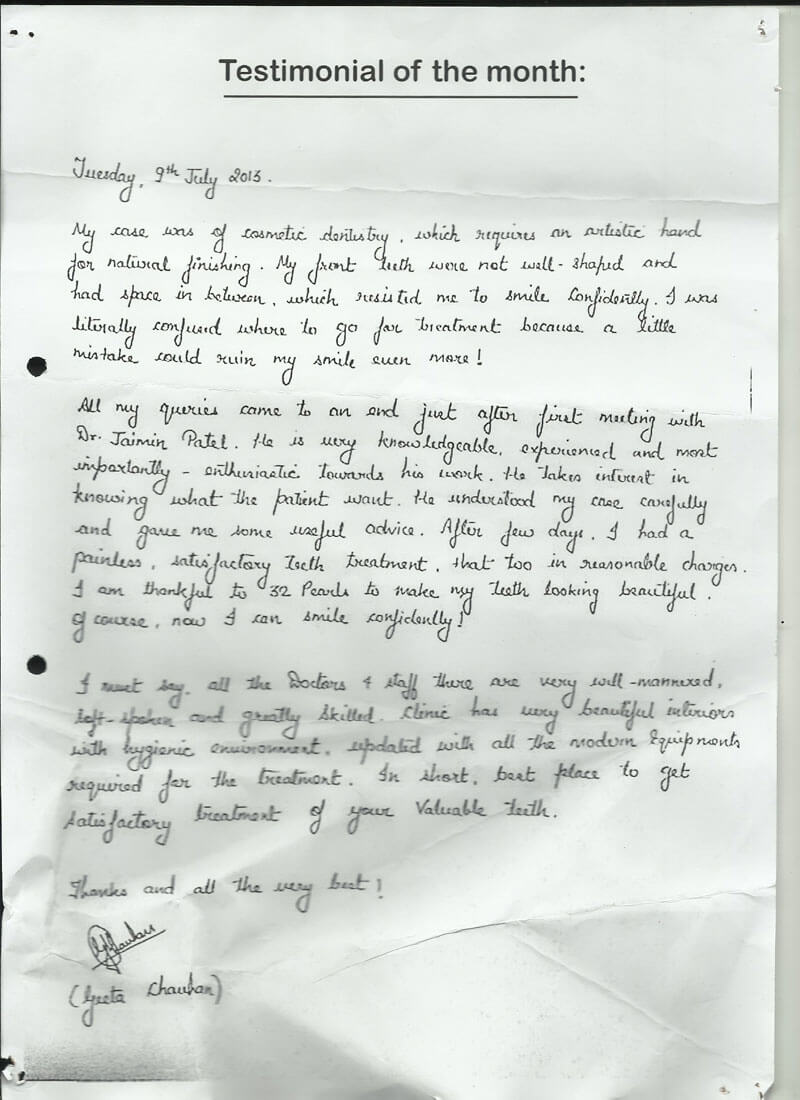 Testimonial of the month:
Tuesday, 9th July 2013.
My case was of cosmetic dentistry, which requires an artistic hand
for natural finishing. My front teeth were not well-shaped and
had space in between, which resisted me to smile confidently. I was
literally confused where to go for treatment because a little
mistake could ruin my smile even more!
All my queries came to an end just after first meeting with
Dr. Jaimin Patel. He is very knowledgeable, experienced and most
importantly - enthusiastic towards his work. He takes interest in
knowing what the patient want. He understood my case carefully
and gave me some useful advice. After few days, I had a
painless, satisfactory teeth treatment, that too in reasonable charges.
I am thankful to 32 Pearls to make my teeth looking beautiful.
Of course, now I can smile confidently!
I must say, all the Doctors & staff there are very well-mannered,
soft-spoken and greatly skilled. Clinic has very beautiful interiors
with hygienic environment, updated with all the modern Equipments
required for the treatment. In short, best place to get
satisfactory treatment of your Valuable teeth.
Thanks and all the very best!
(Geeta Chauhan)